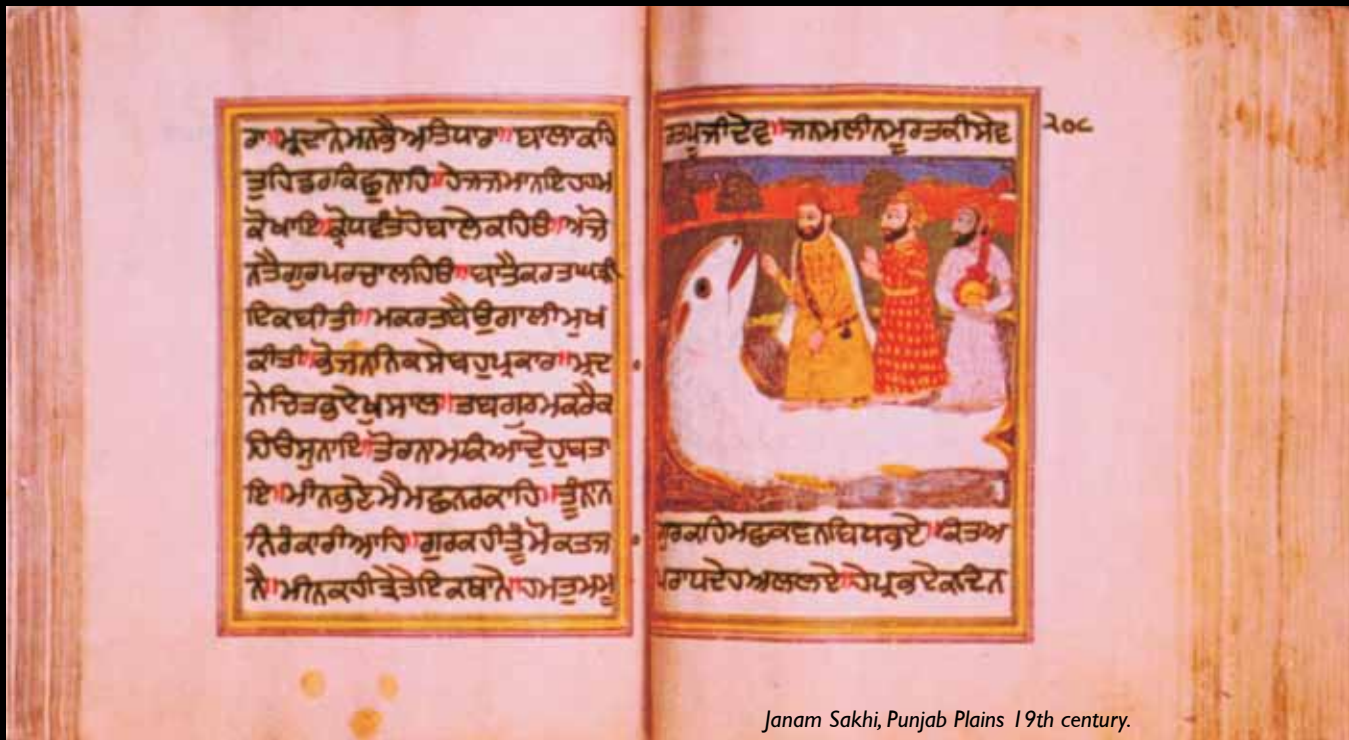 ਰਾ॥ਮ੍ਰਦਾਨੇਮਨਭੈਅਤਿਧਾਰਾ॥ਬਾਲਾਕਹਿ
ਤੁਹਿਡਰਕਿਛੁਨਾਹਿ॥ਹੇਜਜਮਾਨਇਹਹਮ
ਕੋਖਾਇ॥ਕ੍ਰੋਧਵੰਤਹੋਬਾਲੇਕਹਿਓ॥ਅੱਜੋ
ਨਤੈਗੁਰਪਰਚਾਲਹਿਓ॥ਬਾਤੈਕਰਤਘੜੀ
ਇਕਬੀਤੀ॥ਮਕਰਤਬੈਉਗਾਲੀਮੁਖ
ਕੀਤੀ॥ਭੋਜਨਨਿਕਸੇਬਹੁਪ੍ਰਕਾਰ॥ਮ੍ਰਦ
ਨੇਚਿਤਭਦੇਖੁਸਾਲ॥ਤਬਗੁਰਮਕਰੈਕ
ਹਿਓਸੁਨਾਇ॥ਤੋਰਨਾਮਕਿਆਦੇਹੁਬਤਾ
ਇ॥ਮੀਨਭਣੇਮੈਮਛਨਰਕਾਹਿ॥ਤੂੰਨਨ
ਨਿਰੰਕਾਰੀਆਹਿ॥ਗੁਰਕਹੀਤੂੰਮੋਕਤਜ
ਨੈ॥ਮੀਨਕਹੀਤ੍ਰੈਤੇਇਕਥਾਨੇ॥ਹਮਤੁਮਮ੍ਰ
ਤਪੂਜੀਦੇਵ॥ਜਨਮਲੀਨਮੂਰਤਕੀਸੇਵ
੨੦੮
ਗੁਰਕਹਿਮਛਕਵਨਬਿਧਭਏ॥ਕਿਤਅ
ਪਰਾਧਦੇਹਅਲਲਏ॥ਹੇਪ੍ਰਭਏਕਦਿਨ
Janam Sakhi, Punjab Plains 19th century.